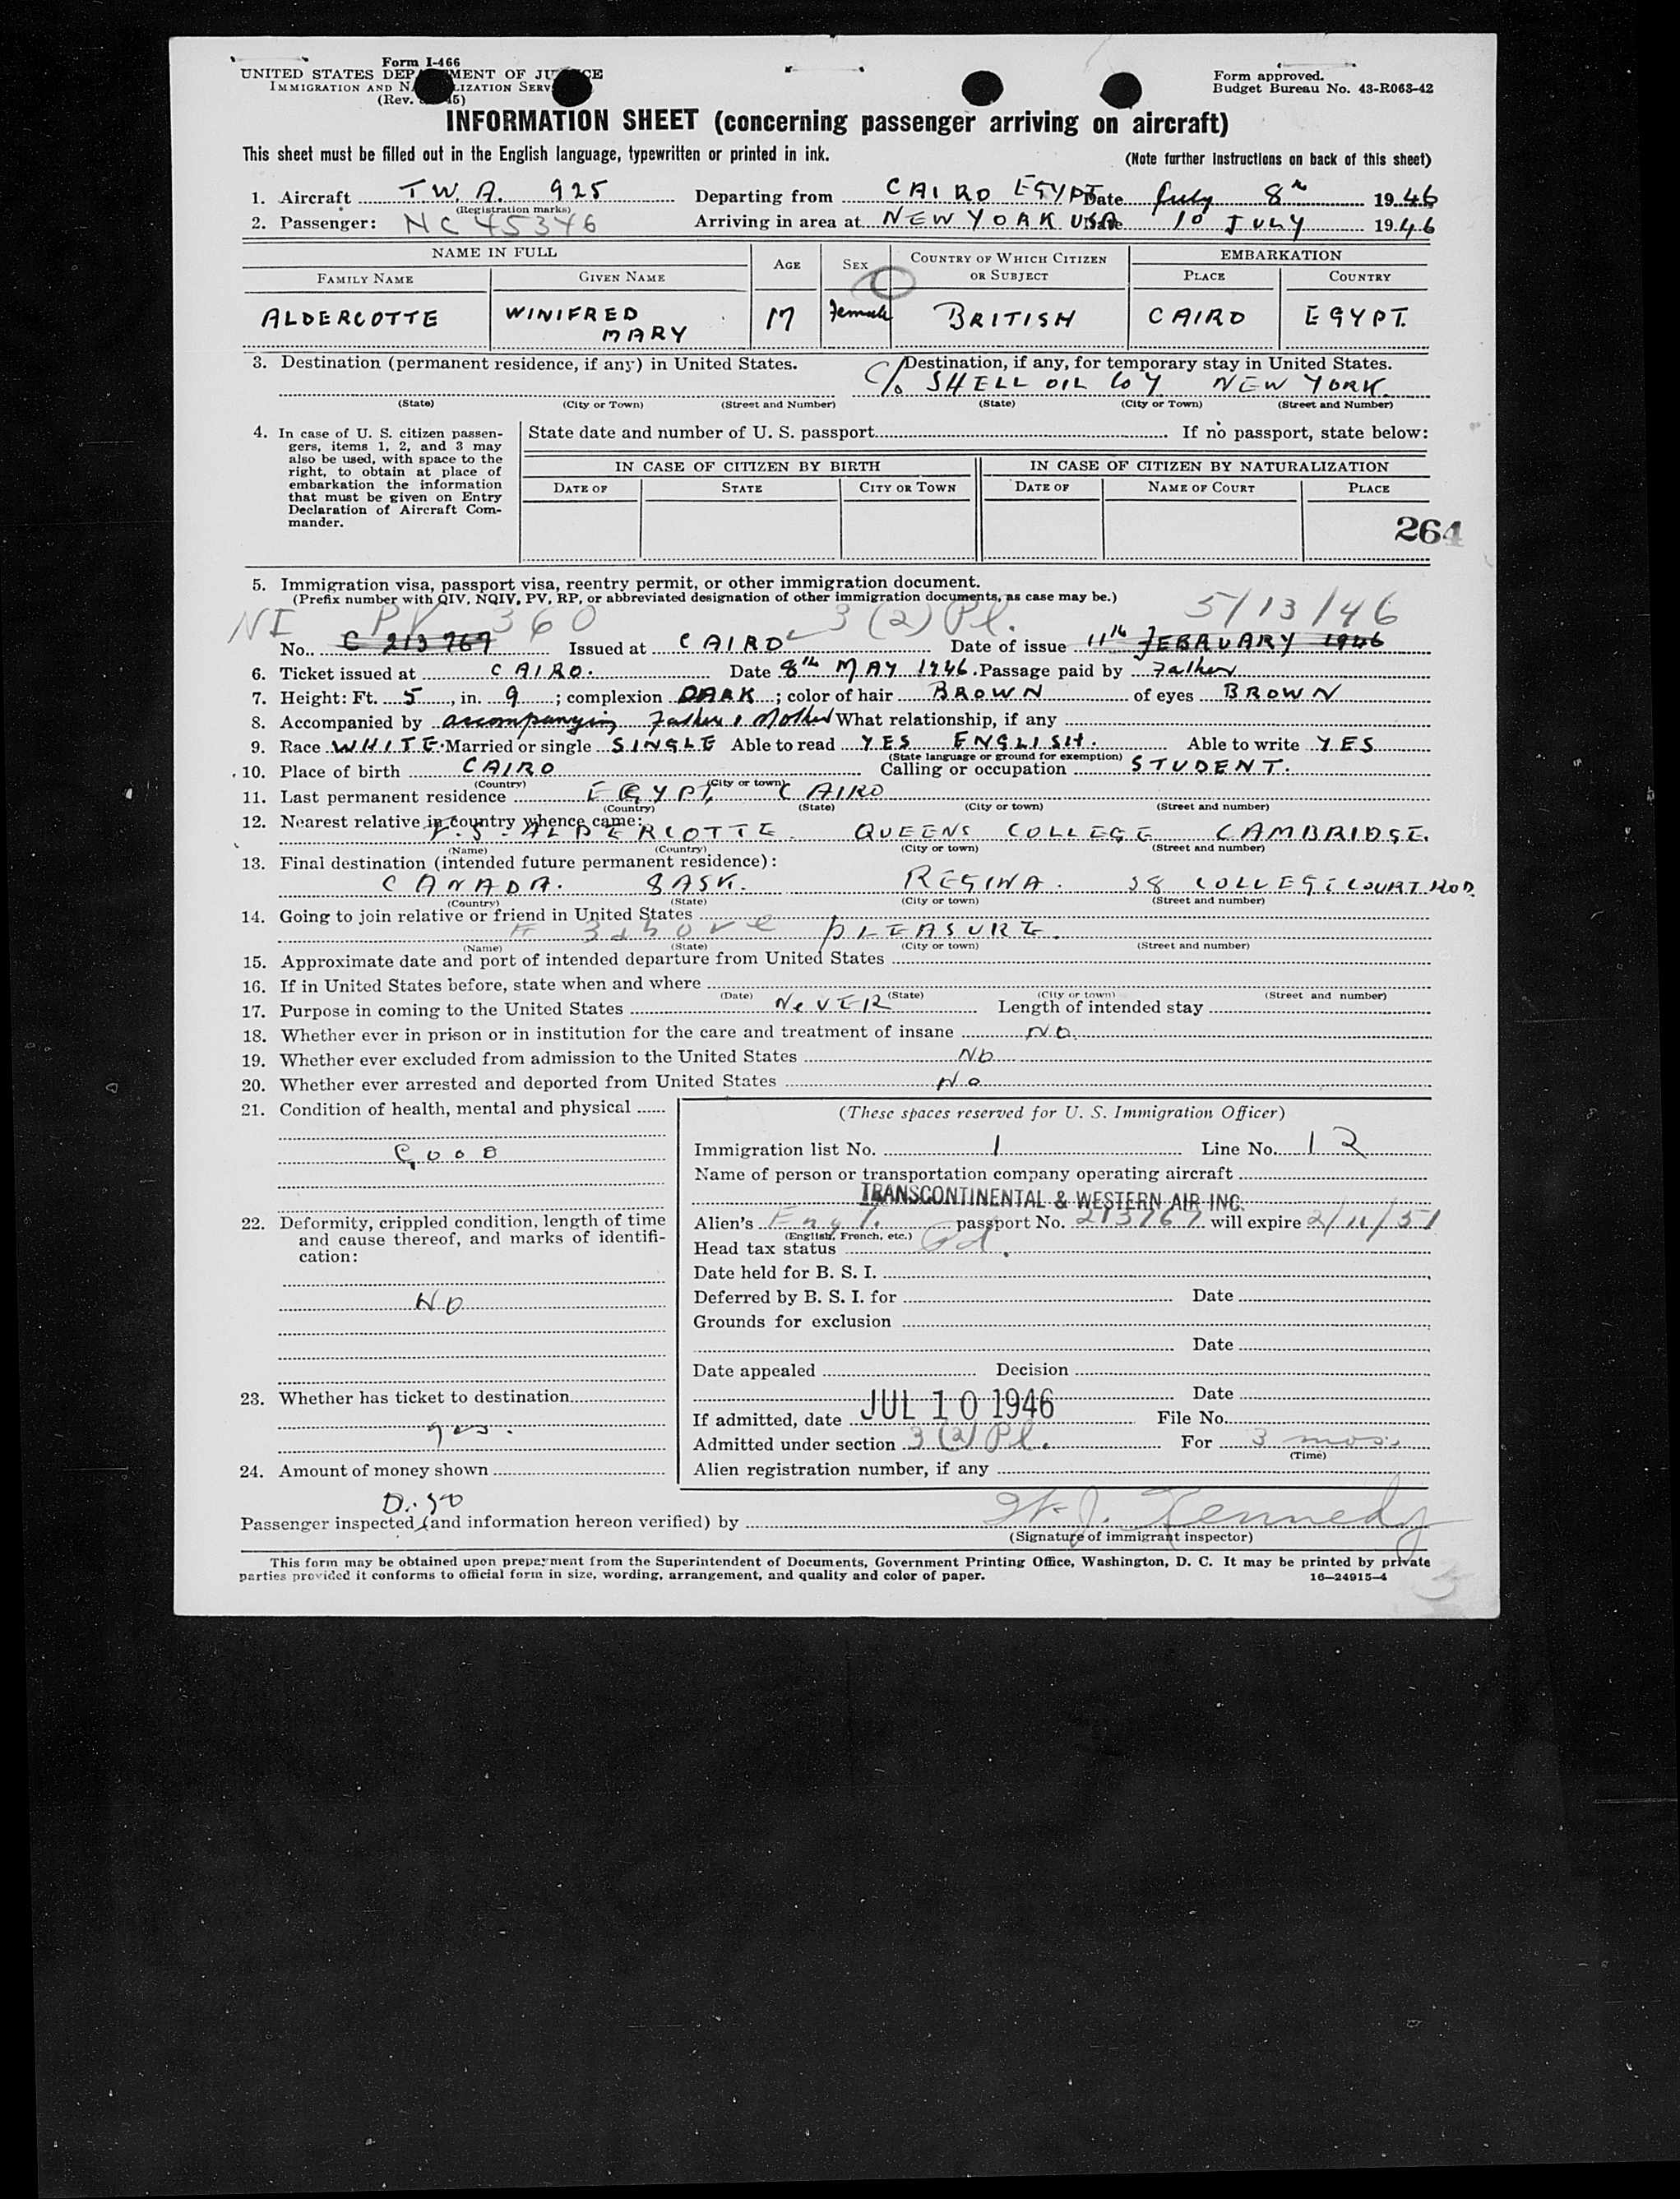 Form I-466
UNITED STATES DEP MENT OF JU CE
IMMIGRATION AND N LIZATION SERV
(Rev. 45)
Form approved.
Budget Bureau No. 43-R063-42
INFORMATION SHEET (concerning passenger arriving on aircraft)
This sheet must be filled out in the English language, typewritten or printed in ink. (Note further instructions on back of this sheet)
1. Aircraft T.W.A. 925 Departing from CAIRO EGYPT Date July 8th 1946
(Registration marks)
2. Passenger: NC 45346 Arriving in area at NEW YORK USA Date 10 JULY 1946
NAME IN FULL AGE SEX COUNTRY OF WHICH CITIZEN OR SUBJECT EMBARKATION
FAMILY NAME GIVEN NAME PLACE COUNTRY
ALDERCOTTE WINIFRED MARY 17 Female BRITISH CAIRO EGYPT.
3. Destination (permanent residence, if any) in United States. Destination, if any, for temporary stay in United States.
C/o SHELL OIL COY NEW YORK.
(State) (City or Town) (Street and Number) (State) (City or Town) (Street and Number)
4. In case of U. S. citizen passen-
gers, items 1, 2, and 3 may
also be used, with space to the
right, to obtain at place of
embarkation the information
that must be given on Entry
Declaration of Aircraft Com-
mander.
State date and number of U. S. passport If no passport, state below:
IN CASE OF CITIZEN BY BIRTH IN CASE OF CITIZEN BY NATURALIZATION
DATE OF STATE CITY OR TOWN DATE OF NAME OF COURT PLACE
264
5. Immigration visa, passport visa, reentry permit, or other immigration document.
(Prefix number with QIV, NQIV, PV, RP, or abbreviated designation of other immigration documents, as case may be.)
NI PV 360 3(2) Pl. 5/13/46
No. C 213767 Issued at CAIRO Date of issue 11th FEBRUARY 1946
6. Ticket issued at CAIRO. Date 8th MAY 1946. Passage paid by Father
7. Height: Ft. 5, in. 9; complexion DARK; color of hair BROWN of eyes BROWN
8. Accompanied by accompanying Father & Mother What relationship, if any
9. Race WHITE. Married or single SINGLE Able to read YES ENGLISH. Able to write YES
(State language or ground for exemption)
10. Place of birth CAIRO Calling or occupation STUDENT.
(Country) (City or town)
11. Last permanent residence EGYPT, CAIRO
(Country) (State) (City or town) (Street and number)
12. Nearest relative in country whence came:
ALDERCOTTE QUEENS COLLEGE CAMBRIDGE.
(Name) (Country) (City or town) (Street and number)
13. Final destination (intended future permanent residence):
CANADA. SASK. REGINA. 38 COLLEGE COURT ROD.
(Country) (State) (City or town) (Street and number)
14. Going to join relative or friend in United States
# 3 above PLEASURE.
(Name) (State) (City or town) (Street and number)
15. Approximate date and port of intended departure from United States
16. If in United States before, state when and where
(Date) (State) (City or town) (Street and number)
17. Purpose in coming to the United States NEVER Length of intended stay
18. Whether ever in prison or in institution for the care and treatment of insane NO.
19. Whether ever excluded from admission to the United States NO
20. Whether ever arrested and deported from United States NO
21. Condition of health, mental and physical
GOOD
22. Deformity, crippled condition, length of time
and cause thereof, and marks of identifi-
cation:
NO
23. Whether has ticket to destination
yes.
24. Amount of money shown
D. 50
(These spaces reserved for U. S. Immigration Officer)
Immigration list No. 1 Line No. 12
Name of person or transportation company operating aircraft
TRANSCONTINENTAL & WESTERN AIR INC.
Alien's Engl. passport No. 213767 will expire 2/11/51
(English, French, etc.)
Head tax status Pd.
Date held for B. S. I.
Deferred by B. S. I. for Date
Grounds for exclusion
Date
Date appealed Decision
Date
If admitted, date JUL 10 1946 File No.
Admitted under section 3(2) Pl. For 3 mos.
(Time)
Alien registration number, if any
Passenger inspected (and information hereon verified) by W. J. Kennedy
(Signature of immigrant inspector)
This form may be obtained upon prepayment from the Superintendent of Documents, Government Printing Office, Washington, D. C. It may be printed by private
parties provided it conforms to official form in size, wording, arrangement, and quality and color of paper. 16—24915-4